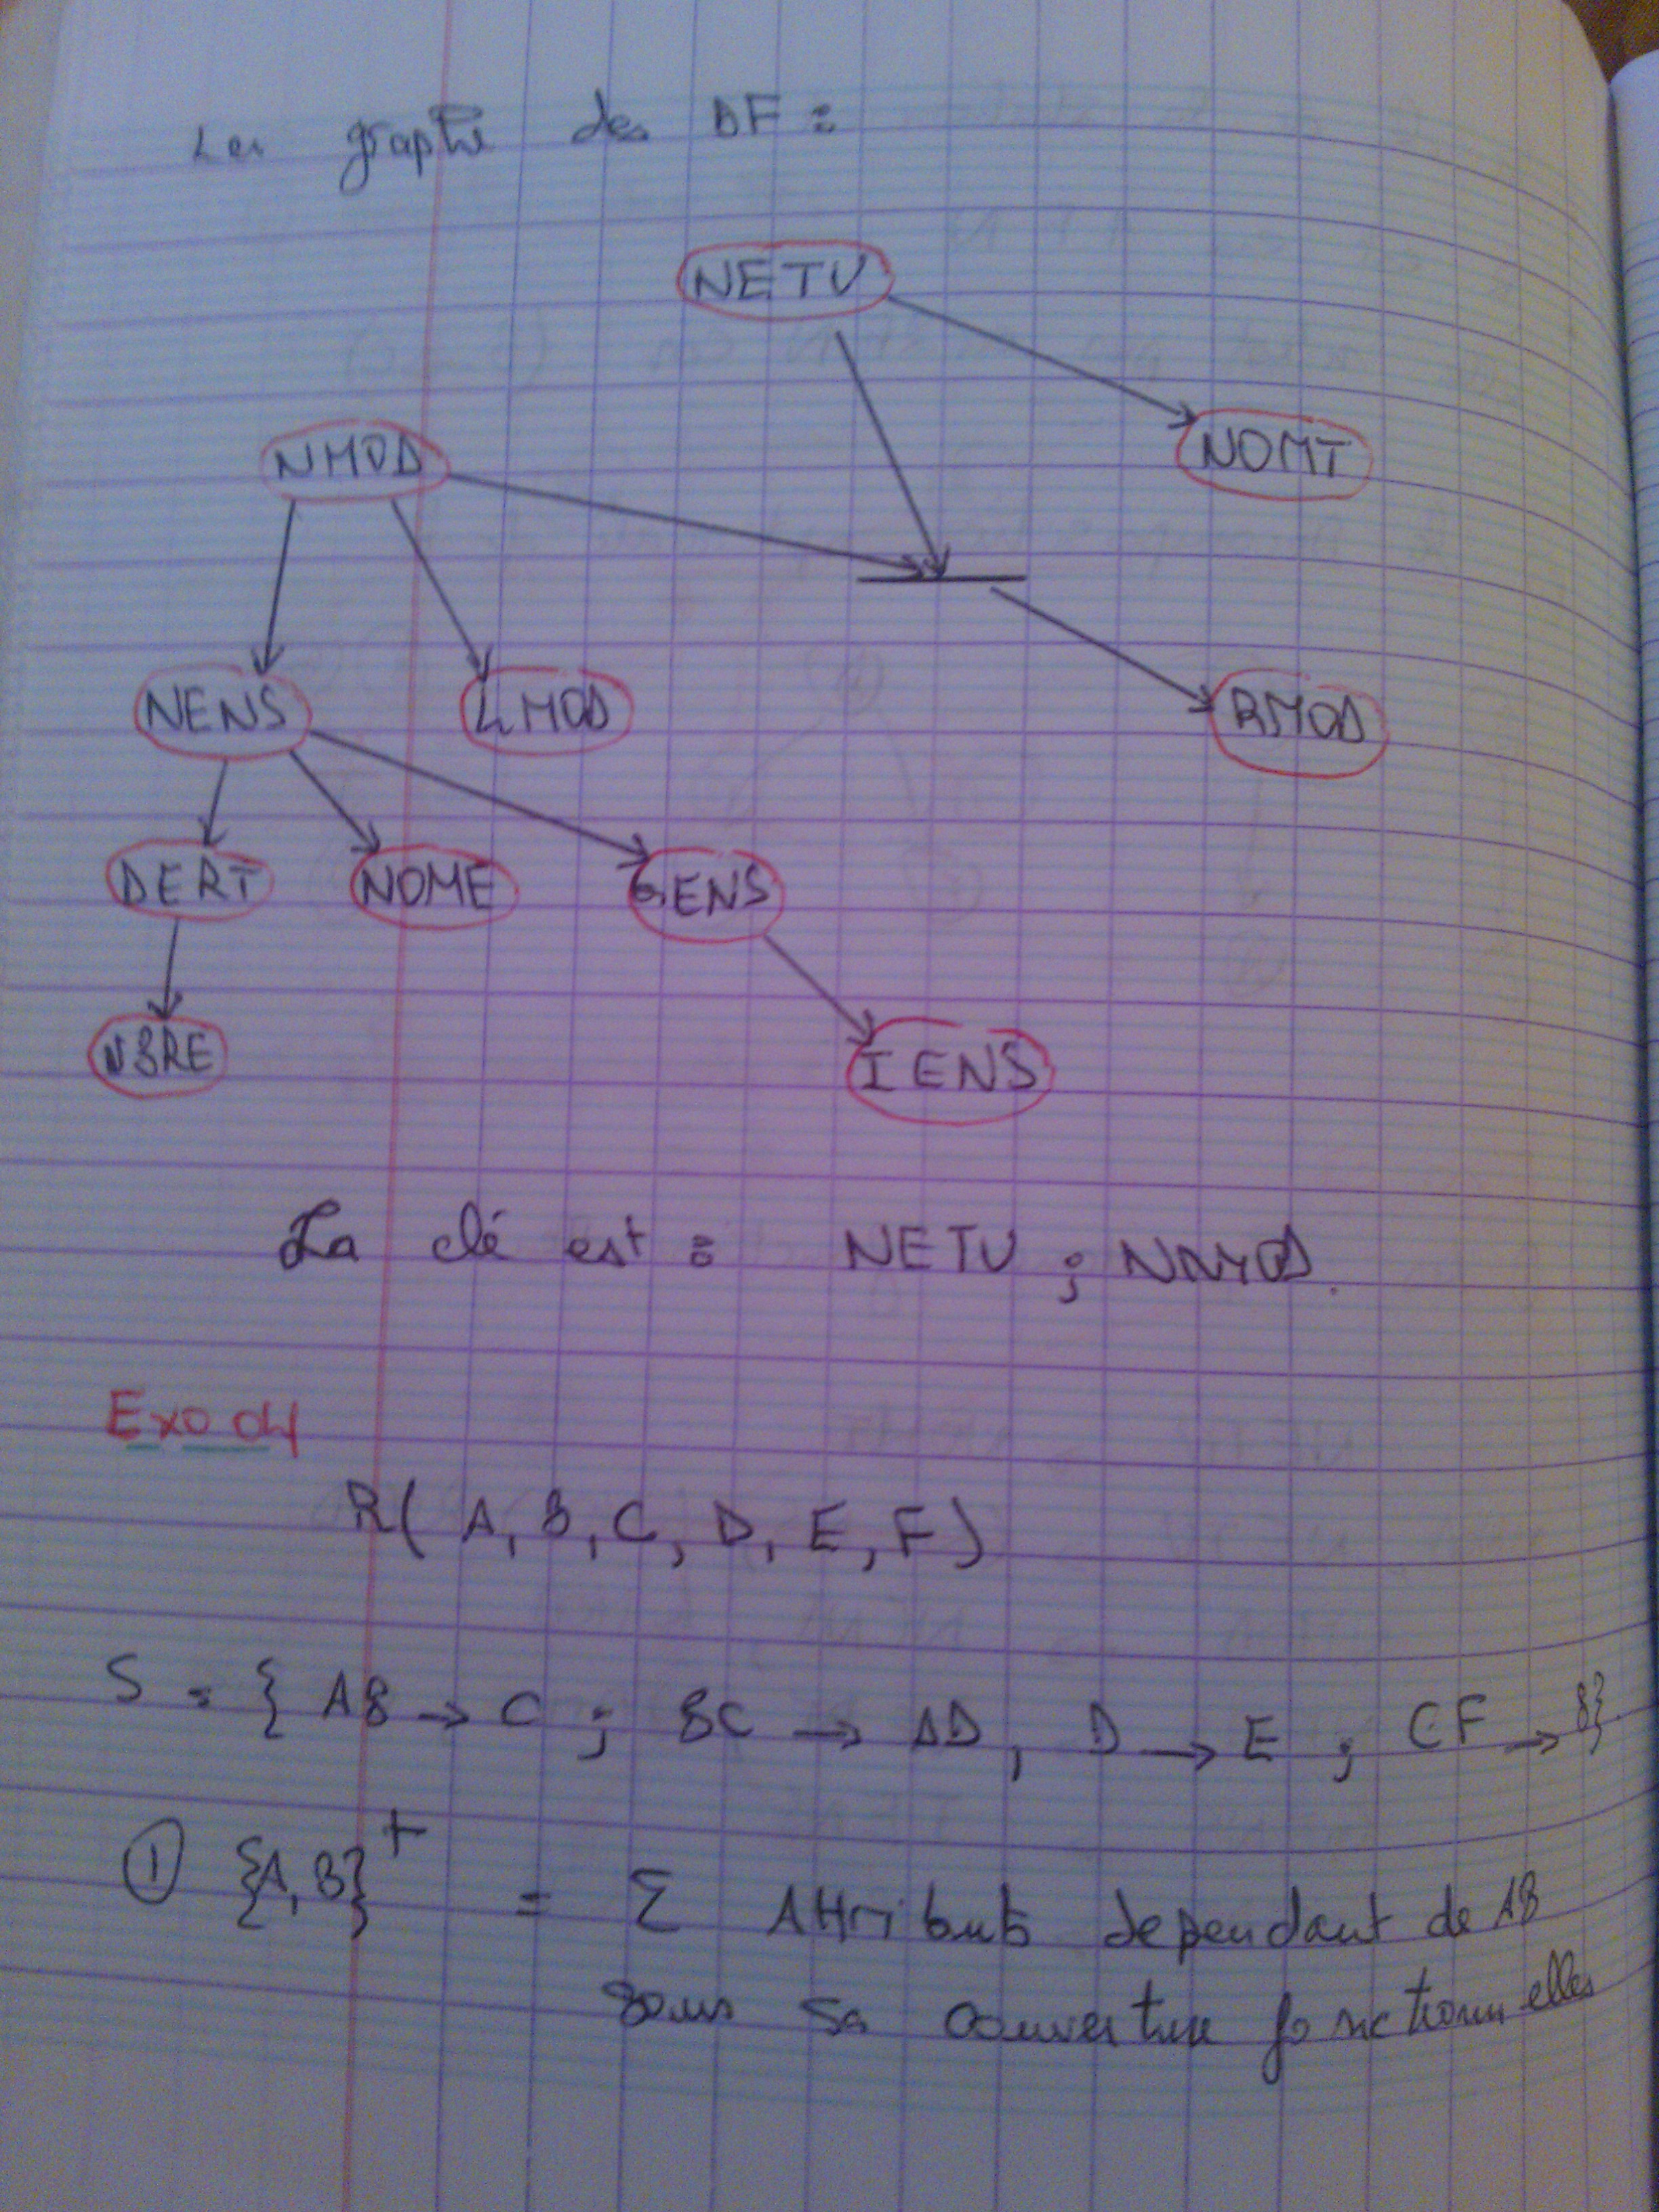 Les graphe des DF :
NETU
NMOD
NOMT
NENS LMOD RMOD
DERT NOME GENS
NBRE IENS
La clé est : NETU ; NMOD.
Exo 04
R( A, B, C, D, E, F)
S = { AB → C ; BC → AD, D → E ; CF → B}
① {A, B}⁺ = Σ Attributs dependant de AB
sous sa couverture fonctionnelles